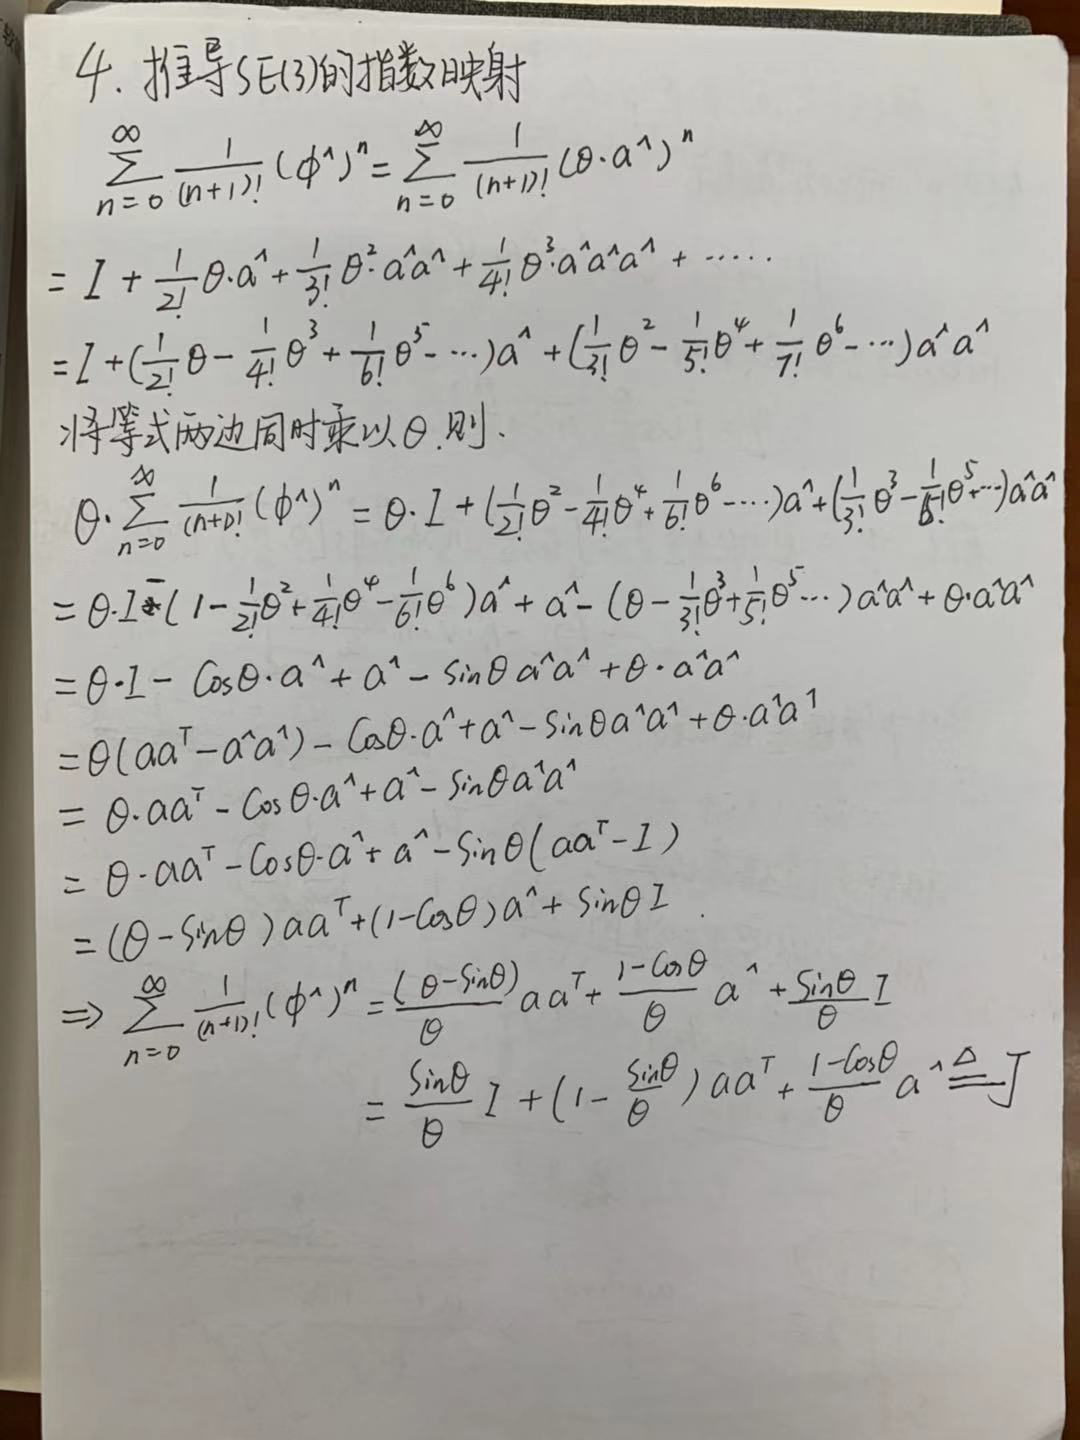 4. 推导SE(3)的指数映射
∑_{n=0}^{∞} 1/(n+1)! (φ^)^n = ∑_{n=0}^{∞} 1/(n+1)! (θ·a^)^n
= I + 1/2! θ·a^ + 1/3! θ²·a^a^ + 1/4! θ³·a^a^a^ + ·····
= I + (1/2! θ - 1/4! θ³ + 1/6! θ⁵ - ···) a^ + (1/3! θ² - 1/5! θ⁴ + 1/7! θ⁶ - ···) a^a^
将等式两边同时乘以θ.则.
θ·∑_{n=0}^{∞} 1/(n+1)! (φ^)^n = θ·I + (1/2! θ² - 1/4! θ⁴ + 1/6! θ⁶ - ····) a^ + (1/3! θ³ - 1/5! θ⁵ + ···) a^a^
= θ·I - (1 - 1/2! θ² + 1/4! θ⁴ - 1/6! θ⁶) a^ + a^ - (θ - 1/3! θ³ + 1/5! θ⁵ ···) a^a^ + θ·a^a^
= θ·I - Cosθ·a^ + a^ - Sinθ a^a^ + θ·a^a^
= θ(aa^T - a^a^) - Cosθ·a^ + a^ - Sinθ a^a^ + θ·a^a^
= θ·aa^T - Cosθ·a^ + a^ - Sinθ a^a^
= θ·aa^T - Cosθ·a^ + a^ - Sinθ(aa^T - I)
= (θ - Sinθ) aa^T + (1-Cosθ) a^ + Sinθ I .
⇒ ∑_{n=0}^{∞} 1/(n+1)! (φ^)^n = (θ-Sinθ)/θ aa^T + (1-Cosθ)/θ a^ + Sinθ/θ I
= Sinθ/θ I + (1 - Sinθ/θ) aa^T + (1-Cosθ)/θ a^ ≜ J